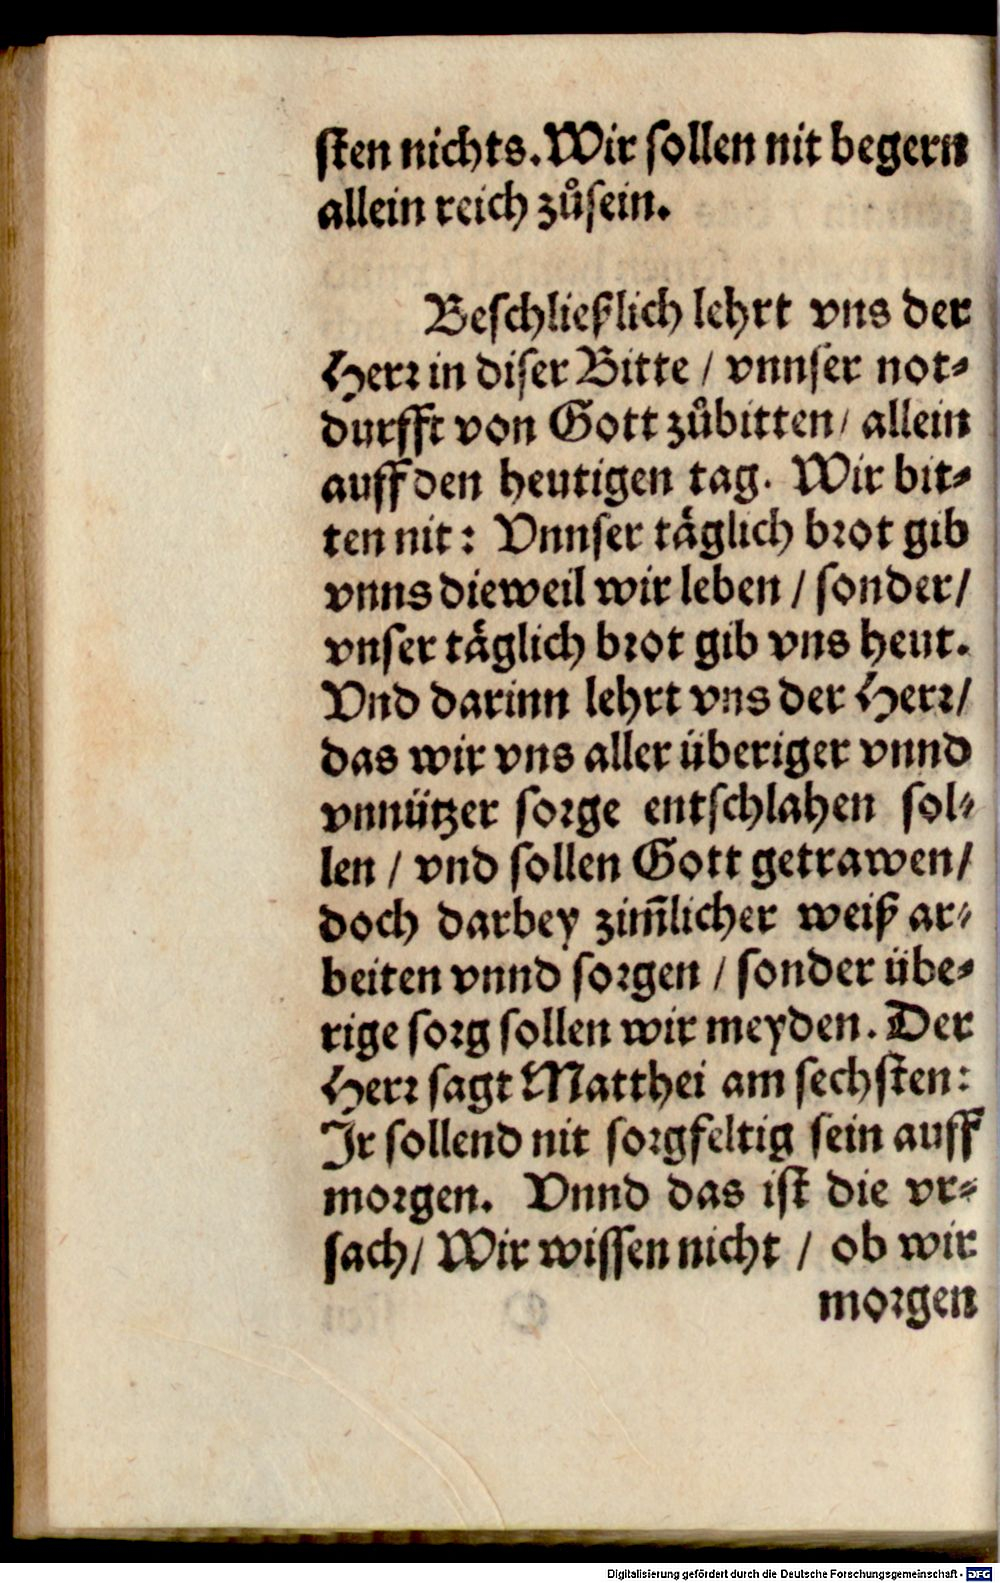 sten nichts. Wir sollen nit begern
allein reich zůsein.
Beschließlich lehrt vns der
Herr in diser Bitte / vnnser not-
durfft von Gott zůbitten / allein
auff den heutigen tag. Wir bit-
ten nit: Vnnser täglich brot gib
vnns dieweil wir leben / sonder /
vnser täglich brot gib vns heut.
Vnd darinn lehrt vns der Herr /
das wir vns aller überiger vnnd
vnnützer sorge entschlahen sol-
len / vnd sollen Gott getrawen /
doch darbey zim̃licher weiß ar-
beiten vnnd sorgen / sonder übe-
rige sorg sollen wir meyden. Der
Herr sagt Matthei am sechsten:
Jr sollend nit sorgfeltig sein auff
morgen. Vnnd das ist die vr-
sach / Wir wissen nicht / ob wir
morgen
Digitalisierung gefördert durch die Deutsche Forschungsgemeinschaft - DFG